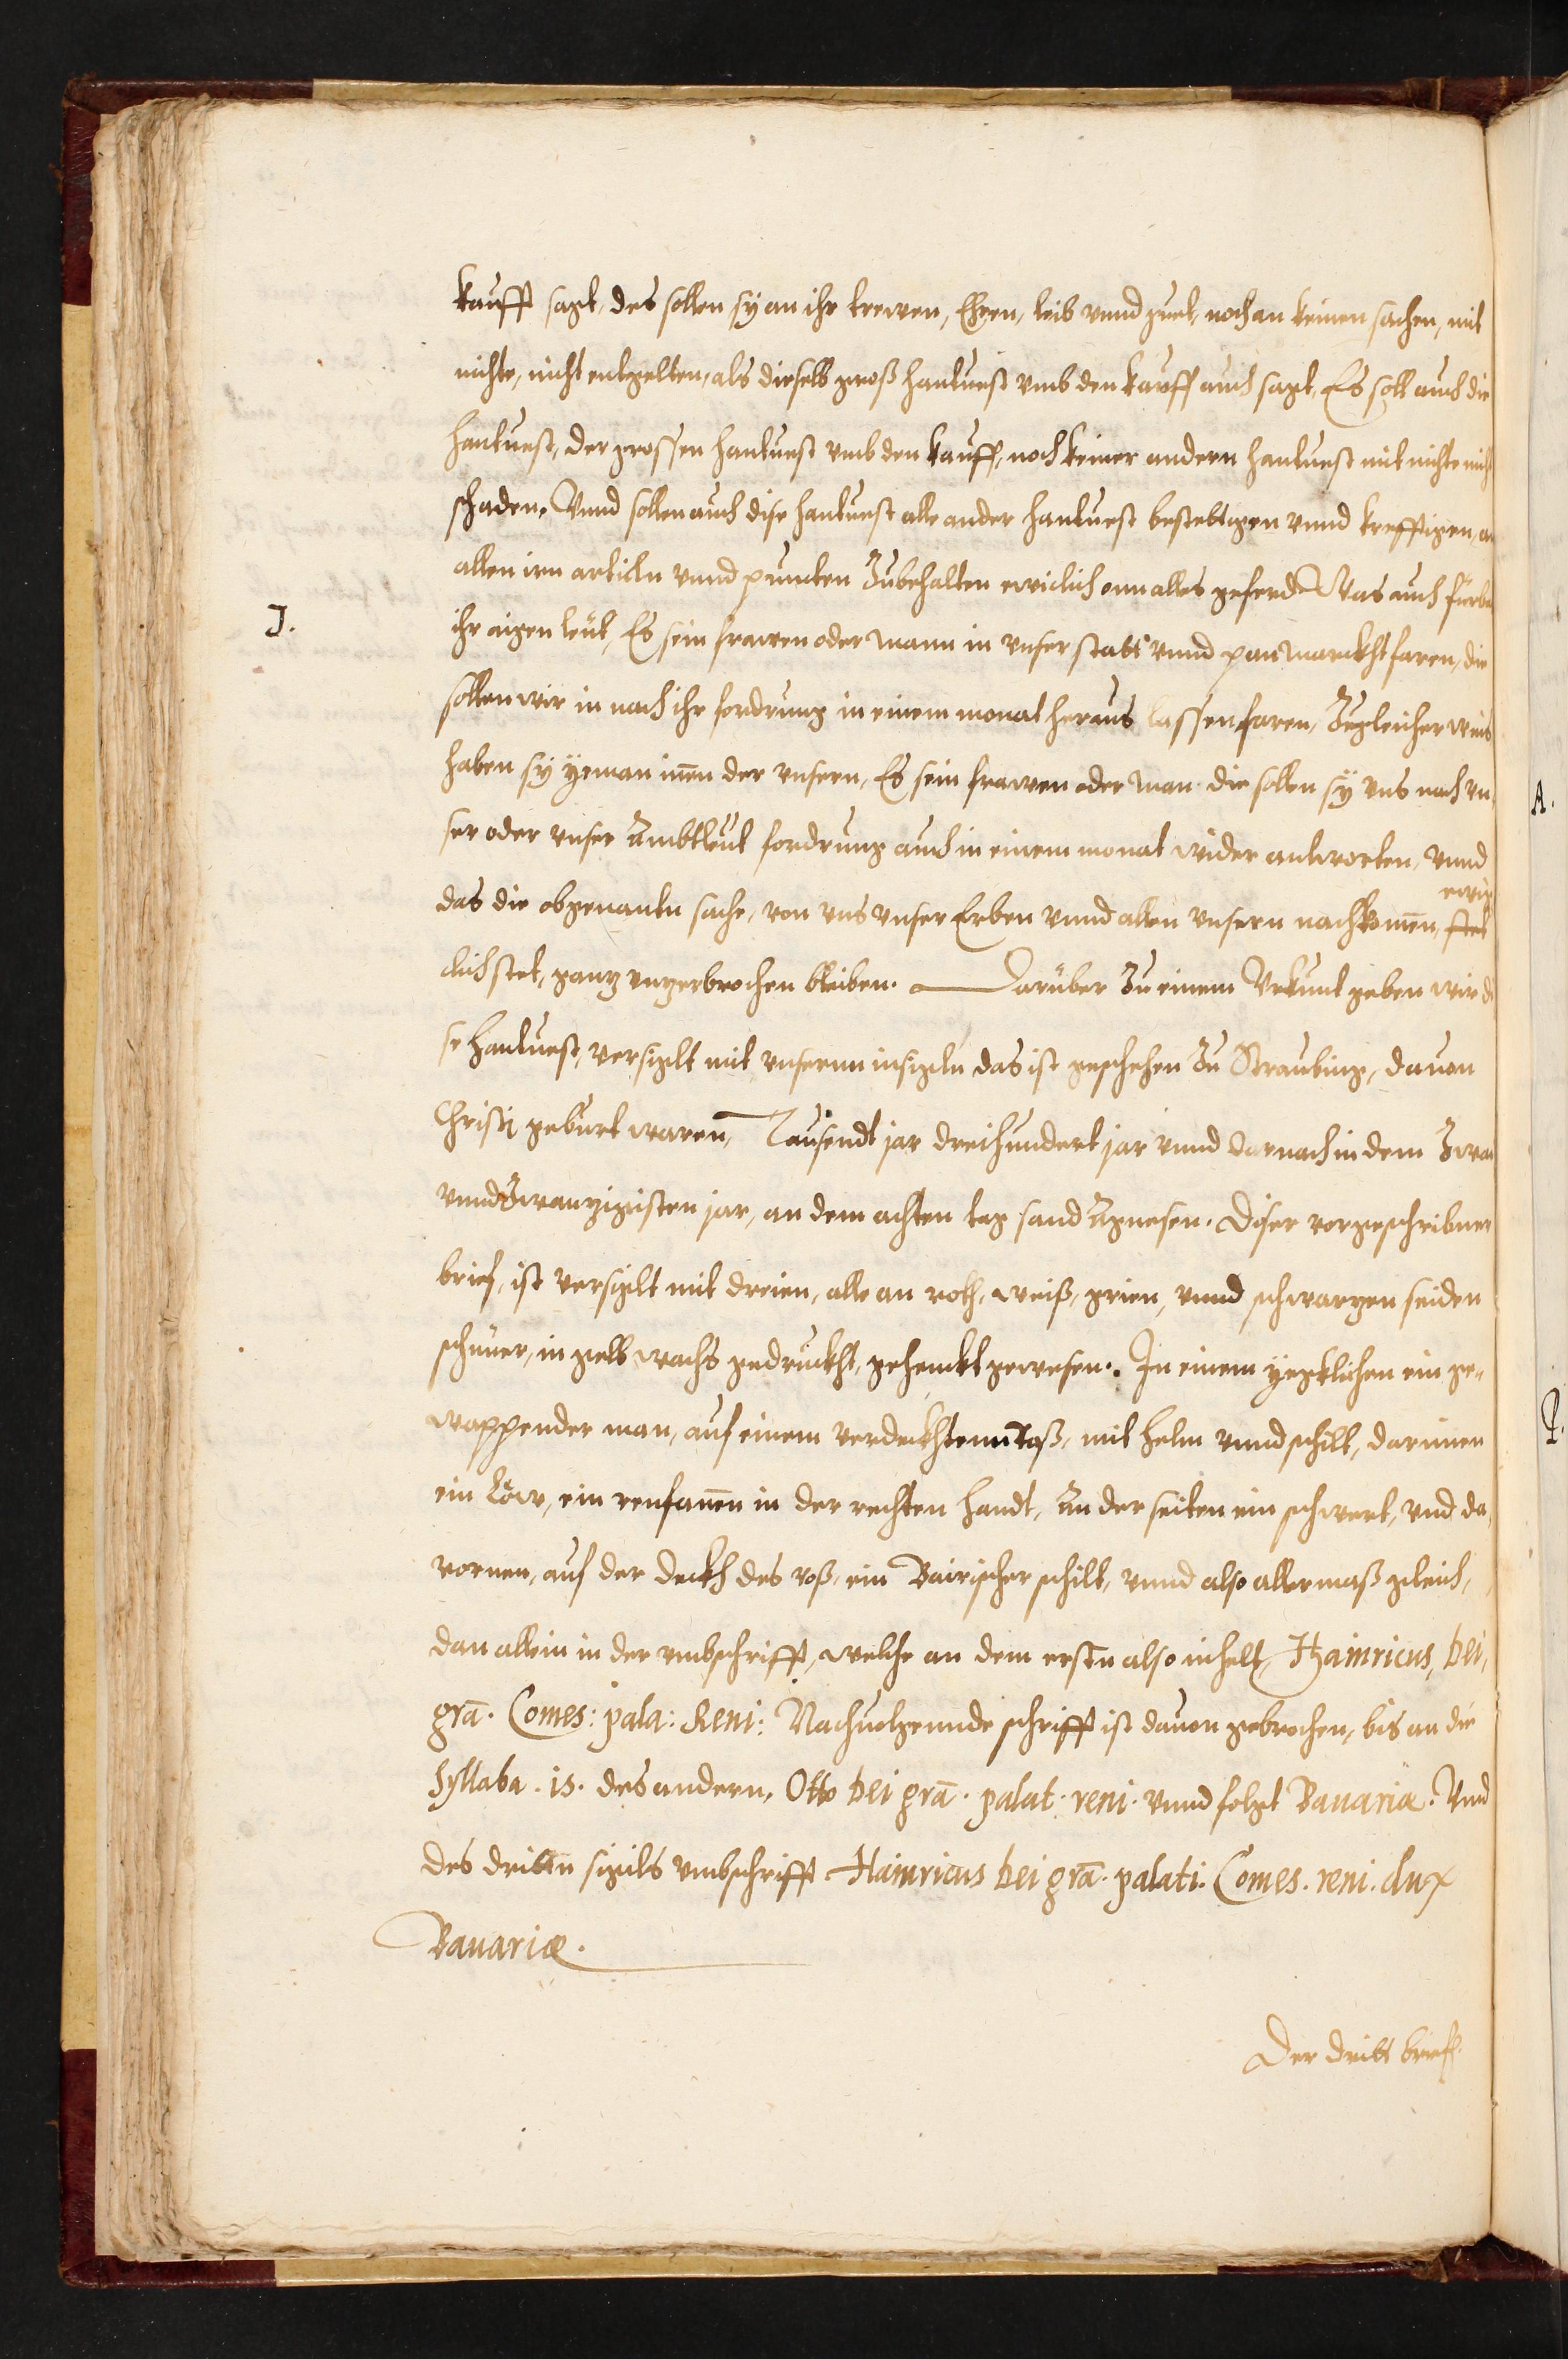 kaufft sagt, des sollen sy an ihr trewen, Ehren, leib vnnd guet, noch an keinen sachen, mit
nichte, nicht entgelten, als dieselb groß hantuest vmb den kauff auch sagt, Es soll auch die
hantuest, der grossen hantuest vmb den kauff, noch keiner andern hantuest mit nichte nicht
schaden, Vnnd sollen auch dise hantuest alle ander hantuest bestettigen vnnd krefftigen, an
allen irn articln vnnd puncten Zubehalten ewiclich onn alles geferde Was auch fürba
J.
ihr aigen leüt, Es sein frawen oder mann in vnser statt vnnd pan marckht faren, die
sollen wir in nach ihr fordrung in einem monat heraus lassen faren, Zugleicher weis
haben sy yeman inen der vnsern, Es sein frawen oder man die sollen sy vns nach vn
ser oder vnser Ambtleut fordrung auch in einem monat wider antworten, vnnd
ewig
das die obgenantn sache, von vns vnser Erben vnnd allen vnsern nachkomen, stet
clich stet, gantz vnzerbrochen bleiben. Darüber Zu einem Vrkunt geben wir di
se hantuest, versiglt mit vnsernn insigeln das ist geschehen Zu Straubing, da von
Christi geburt waren, Tausendt jar dreihundert jar vnnd darnach in dem Zwai
vnnd Zwantzigisten jar, an dem achten tag sand Agnesen. Diser vorgeschribner
brief, ist versiglt mit dreien, alle an roth, weiß, grien, vnnd schwartzen seiden
schnüer, in gelb wachs gedruckht, gehenckt gewesen. In einem yegklichen ein ge-
wappender man, auf einem verdeckhtenn Roß, mit helm vnnd schilt, darinnen
ein Löw, ein renfanen in der rechten handt, An der seiten ein schwert, vnd da
vornen, auf der deckh des roß, ein Bairischer schilt, vnnd also allermaß gleich,
dan allein in der vmbschrifft, welche an dem erstn also inhelt, Hainricus, Dei,
grā. Comes: pala: Reni: Nachuolgennde schrifft ist dauon gebrochen, bis an die
Syllaba . is. des andern, Otto Dei grā. palat. reni. vnnd folgt Bauariæ. Vnd
des drittn sigils vmbschrifft Hainricus Dei grā. palati. Comes. reni. dux
Bauariæ.
Der dritt brieff.
A.